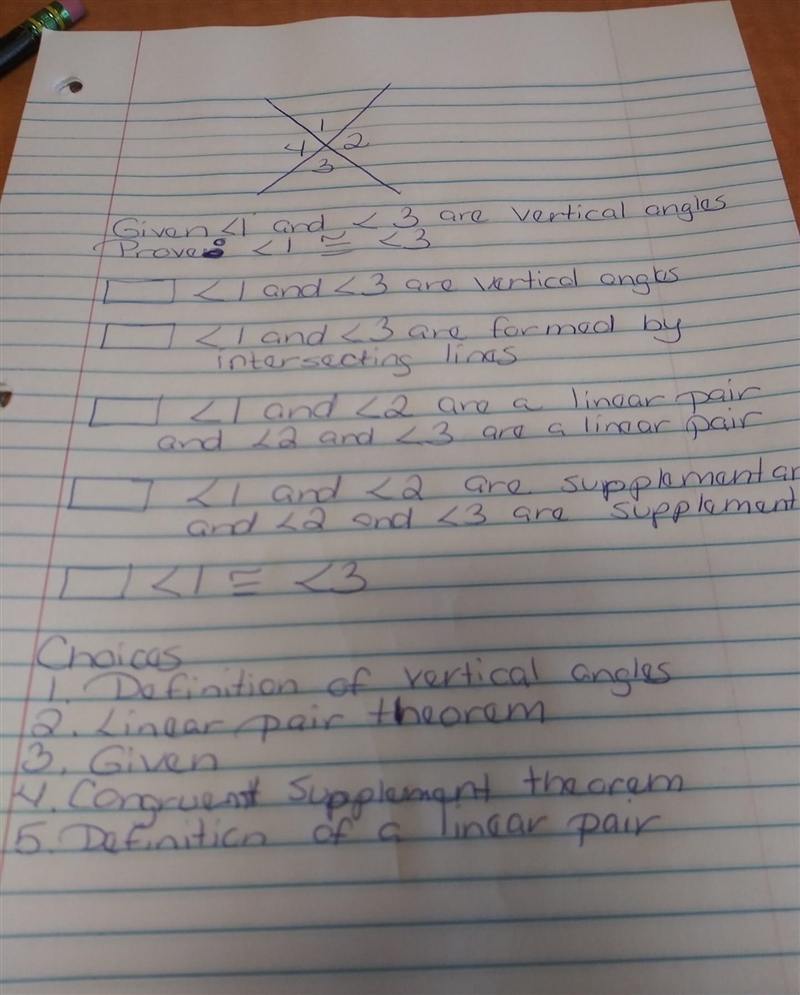 1
4 2
3
Given <1 and < 3 are vertical angles
Prove: <1 ≅ <3
<1 and <3 are vertical angles
<1 and <3 are formed by
intersecting lines
<1 and <2 are a linear pair
and <2 and <3 are a linear pair
<1 and <2 are supplementar
and <2 and <3 are supplement
<1 ≅ <3
Choices
1. Definition of vertical angles
2. Linear pair theorem
3. Given
4. Congruent Supplement theorem
5. Definition of a linear pair